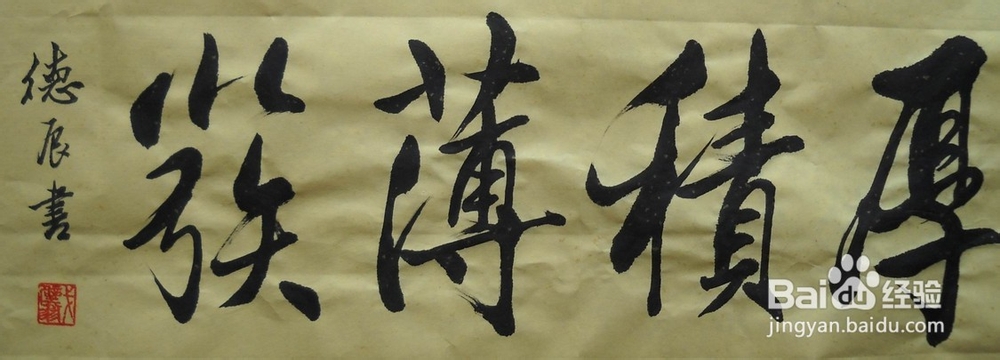 厚積薄發
德辰書
Baidu 经验
jingyan.baidu.com